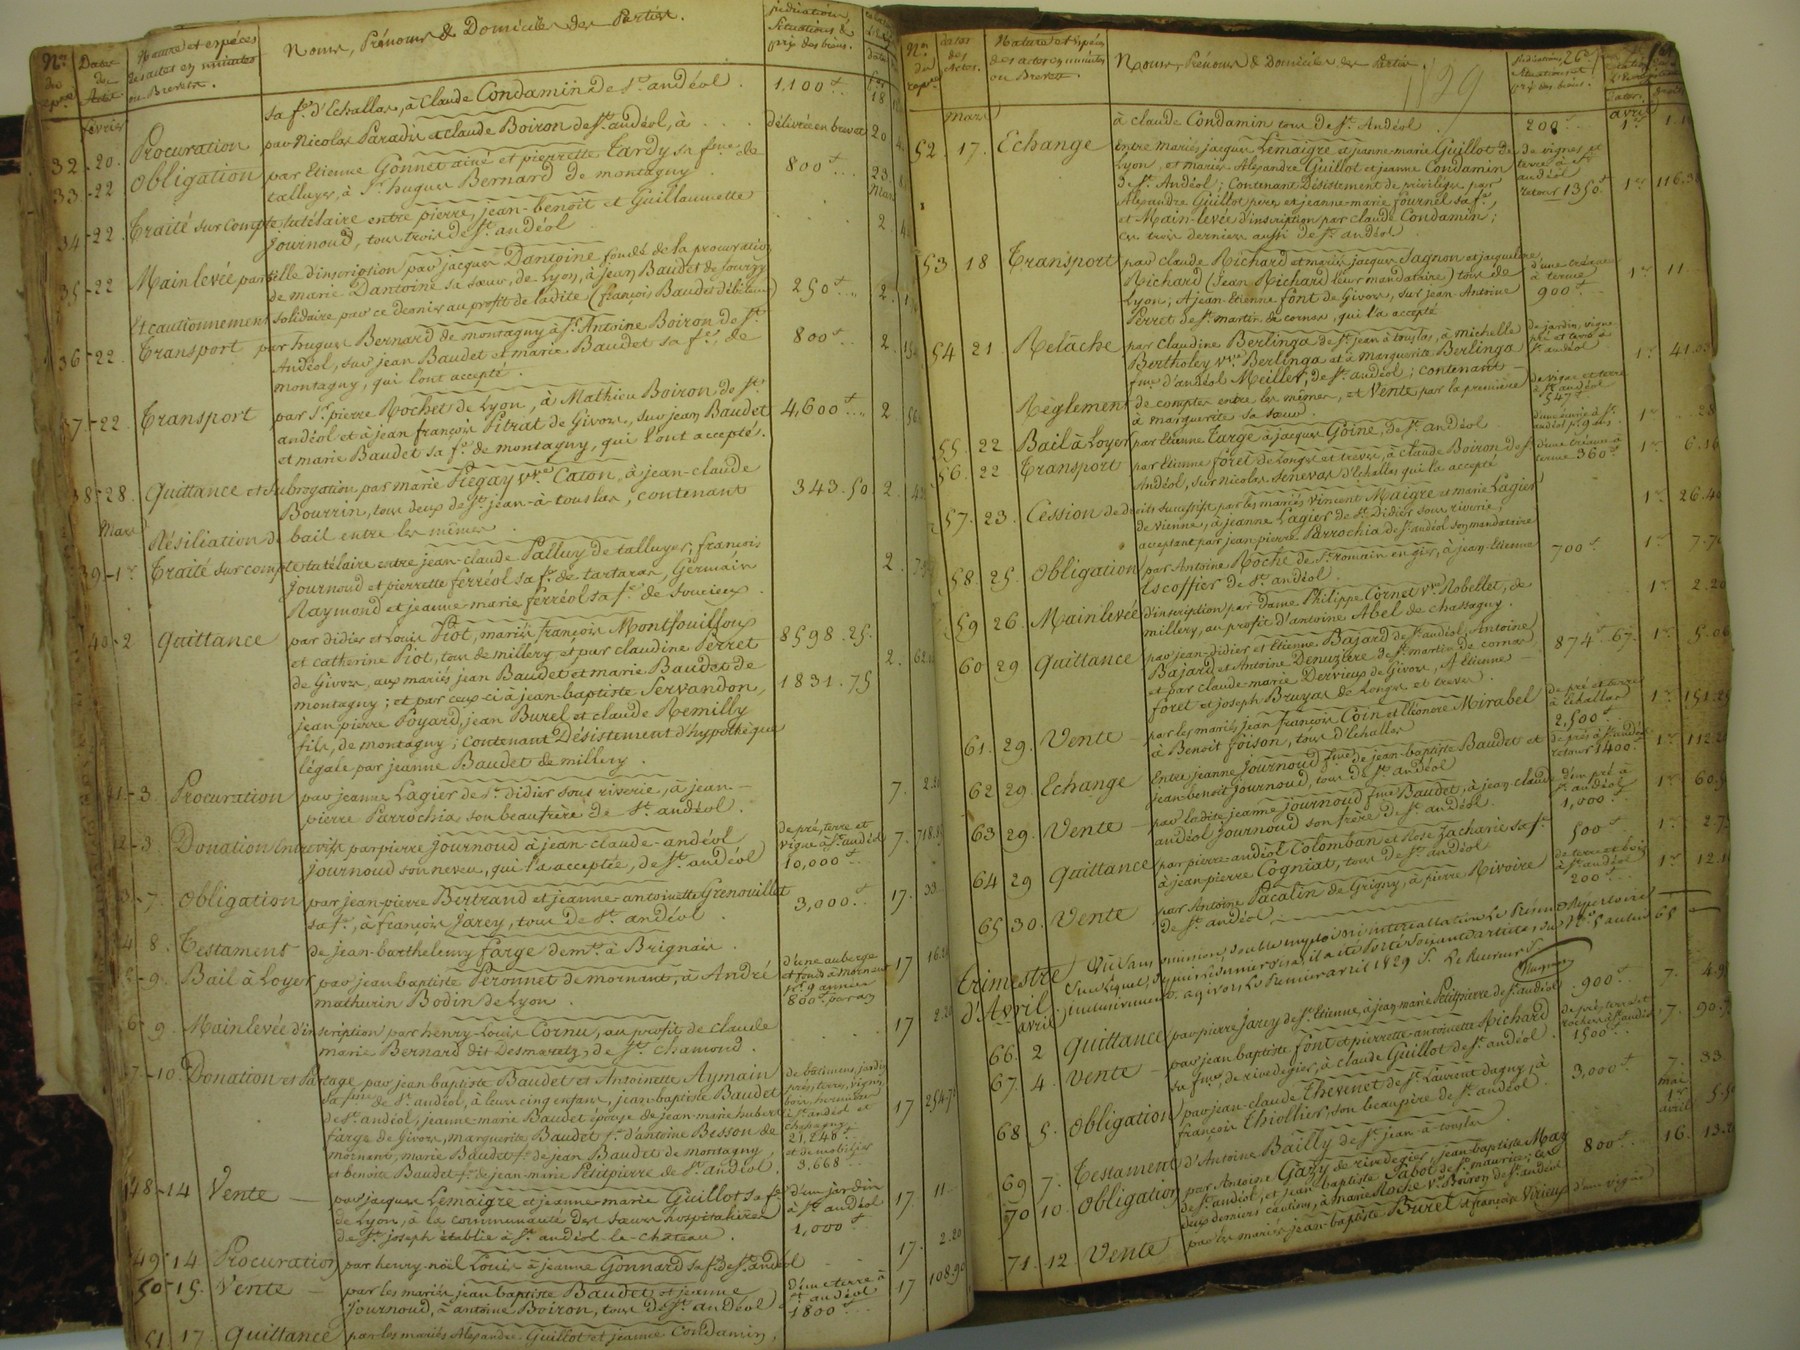 Nos du rép.re
Dates des Actes
Nature et espèces des actes en minutes ou Brevets.
Noms, Prénoms & Domiciles des Parties.
Situations & prix des biens.
février
sa fe d'Echallas, à Claude Condamin de St andéol. 1.100 #
32. 20. Procuration par Nicolas Paradis à claude Boiron de St andéol, à . . . délivrée en brevet 20
33-22 Obligation par Etienne Gonnet ainé et pierrette Tardy sa fme de
talluyes, à Sr hugues Bernard de montagny. 800 # 23
34-22. Traité sur compte tutélaire entre pierre, jean-benoit et Guillaumette
Journoud, tous trois de St andéol 2.
35-22 Main levée partielle d'inscription par jacques Dantoine fondé de la procuration
de marie Dantoine sa sœur, de Lyon, à jean Baudet de
Et cautionnement solidaire par ce dernier au profit de ladite (françois Baudet débiteur) 250 # 2.
36-22. Transport par hugues Bernard de montagny à Sr Antoine Boiron de St
Andéol, sur jean Baudet et marie Baudet sa fe, de 800 # 2.
montagny, qui l'ont accepté.
37.-22. Transport par Sr pierre Rochet de Lyon, à Mathieu Boiron de St
andéol et à jean françois Pitrat de Givors, sur jean Baudet 4,600 # 2.
et marie Baudet sa fe de montagny, qui l'ont accepté.
38-28. Quittance et subrogation par marie Piegay vve Caton, à jean-claude
Bourrin, tous deux de St jean-à-touslas, contenant 343.50 2.
Mars
Résiliation de bail entre les mêmes.
39-1er Traité sur compte tutélaire entre jean-claude Palluy de talluyes, françois
Journoud et pierrette ferréol sa fe de tartaras, Germain 2.
Raymond et jeanne-marie ferréol sa fe de Soucieux.
40-2 Quittance par didier et Louis Piot, mariés françois Montfouilloux
et catherine Piot, tous de millery et par claudine Perret 8598.25.
de Givors, aux mariés jean Baudet et marie Baudet de 2.
montagny; et par ceux-ci à jean-baptiste Servandon, 1831.75
jean pierre Poyard, jean Burel et claude Remilly
fils, de montagny; contenant Désistement d'hypothèque
légale par jeanne Baudet de millery.
41.-3. Procuration par jeanne Lagier de St didier sous riverie, à jean-
pierre Parrochia son beaufrère de St andéol. 7.
42-3. Donation Entrevifs par pierre journoud à jean-claude-andéol de pré, terre et vigne à St andéol
Journoud son neveu, qui l'a acceptée, de St andéol 10,000 # 7.
43-7. Obligation par jean-pierre Bertrand et jeanne-antoinette Grenouillet
sa fe, à françois Jarey, tous de St andéol. 3,000 # 17.
44 8. Testament de jean-barthelemy farge demt à Brignais.
45-9. Bail à Loyer par jean baptiste Peronnet de mornant, à André d'une auberge et fonds à mornant
mathurin Bodin de Lyon. pr 9 années 800 # par an 17
46-9. Mainlevée d'inscription par henry-Louis Cornu, au profit de claude
marie Bernard dit Desmaretz, de St chamond. 17
47-10. Donation et Partage par jean-baptiste Baudet et Antoinette Aymain de bâtimens, jardin,
sa fme de St andéol, à leurs cinq enfans, jean-baptiste Baudet prés, terres, vignes,
de St andéol, jeanne-marie Baudet épouse de jean-marie hubert bois
farge de Givors, marguerite Baudet fe d'antoine Besson de à St andéol et chassagny 21,248 # 17
mornant, marie Baudet fe de jean Baudet de montagny, et de mobilier
et benoite Baudet fe de jean-marie Petitpierre de St andéol. 3,668
48-14 Vente - par jacques Lemaigre et jeanne-marie Guillot sa fe d'un jardin
de Lyon, à la communauté des sœurs hospitalières à St andéol 17. 11
de St joseph établie à St andéol-le-château. 1,000 #
49-14 Procuration par henry-noël Louis à jeanne Gonnard sa fe de St andéol 17. 2.20
50-15. Vente - par les mariés jean baptiste Baudet et jeanne d'une terre à
Journoud, à antoine Boiron, tous de St andéol St andéol 1800 # 17 108.90
51. 17. Quittance par les mariés Alexandre Guillot et jeanne Condamin,
Nos du rép.
dates des Actes.
Nature et espèces des actes en minutes ou Brevets.
Noms, Prénoms & Domiciles des Parties.
1829
26e
Mars
avril
à claude Condamin tous de St Andéol 200 # 1er
52. 17. Echange entre mariés jacques Lemaigre et jeanne-marie Guillot de de vignes et
Lyon, et mariés Alexandre Guillot et jeanne Condamin terres à St andéol
de St Andéol; Contenant Désistement de privilège par retour 1350 # 1er
Alexandre Guillot père et jeanne-marie fournel sa fe,
et Main-levée d'inscription par claude Condamin;
ces trois derniers aussi de St andéol.
53 18 Transport par claude Richard et mariés jacques Sagnon et jacqueline
Richard (Jean Richard leur mandataire) tous de d'une créance à terme 1er 11
Lyon; A jean-Etienne font de Givors, sur jean-Antoine 900 #
Perret de St martin de cornas, qui l'a accepté.
54 21. Relâche par claudine Berlinga de St jean à touslas, à michelle de jardin, vigne
Bertholey vve Berlinga et à marguerite Berlinga pré et terre à St andéol
fme d'andéol Meiller, de St andéol; contenant 1er
Règlement de comptes entre les mêmes, et Vente par la première de vigne et terre à St andéol
à marguerite sa sœur. 547 #
55. 22 Bail à Loyer par Etienne Targe à jacques Goine, de St andéol. 1er
56. 22 Transport par Etienne forêt de Longes et trèves, à claude Boiron de St d'une créance à
Andéol, sur nicolas Senevas d'Echallas qui l'a accepté terme 360 # 1er 6.16
57. 23. Cession de droits successifs, par les mariés Vincent Maigre et marie Lagier
de vienne, à jeanne Lagier de St Didier sous riverie, 1er 26.40
acceptant par jean-pierre Parrochia de St andéol son mandataire
58. 25. Obligation par Antoine Roche de St romain en gier, à jean-Etienne
Escoffier de St andéol. 700 # 1er 7.70
59 26. Mainlevée d'inscription par Dame Philippe Cornet vve Robellet, de
millery, au profit d'antoine Abel de chassagny. 1er 2.20
60 29 Quittance par jean-didier et Etienne Bajard de St andéol, Antoine
Bajard et Antoine Denuzière de St martin de cornas 874 # 67. 1er 5.06
et par claude-marie Dervieux de Givors, A Etienne
forêt et joseph Bruyas de Longes et trèves.
61. 29. Vente - par les mariés jean françois Coin et Eléonore Mirabel de pré et terre à Echallas
à Benoit Joison, tous d'Echallas 2,500 # 1er
62 29. Echange Entre jeanne Journoud fme de jean-baptiste Baudet et de prés à St andéol
jean-benoit journoud, tous de St andéol retour 1400 # 1er
63 29. Vente - par ladite jeanne journoud fme Baudet, à jean-claude d'un pré à St andéol
andéol journoud son frère de St andéol. 1,000 # 1er
64 29 Quittance par pierre-andéol Colomban et Rose Zacharie sa fe
à jean pierre Cogniat, tous de St andéol 500 # 1er
65 30. Vente par Antoine Pacalin de Grigny, à pierre Rivoire de terre et bois à St andéol
de St andéol. 200 # 1er
trimestre
d'Avril
avril
Vu sans omission, double emploi ni intercallation le présent Répertoire
à Givors Le Premier avril 1829 Le Receveur
66. 2 Quittance par pierre Jarey de St Etienne, à jean-marie Petitpierre de St andéol 900 # 7.
67. 4. Vente - par jean baptiste font et pierrette-antoinette Richard de pré, terre et
sa fme, de rivedegier, à claude Guillot de St andéol. 1500 # 7.
68 5. Obligation par jean-claude Thevenet de St Laurent dagny, à
françois Thiollier, son beaupère de St andéol. 3,000 # 7. 33
69 7. Testament d'Antoine Bailly de St jean-à-touslas mai 1er
avril
70 10. Obligation par Antoine Gazy de rivedegier, jean-baptiste May
de St andéol, et jean baptiste Fabot de St maurice; les 800 # 16.
deux derniers cautions, à marie Roche vve Boiron de St andéol
71. 12 Vente par les mariés jean-baptiste Burel et françoise Virieux d'une vigne